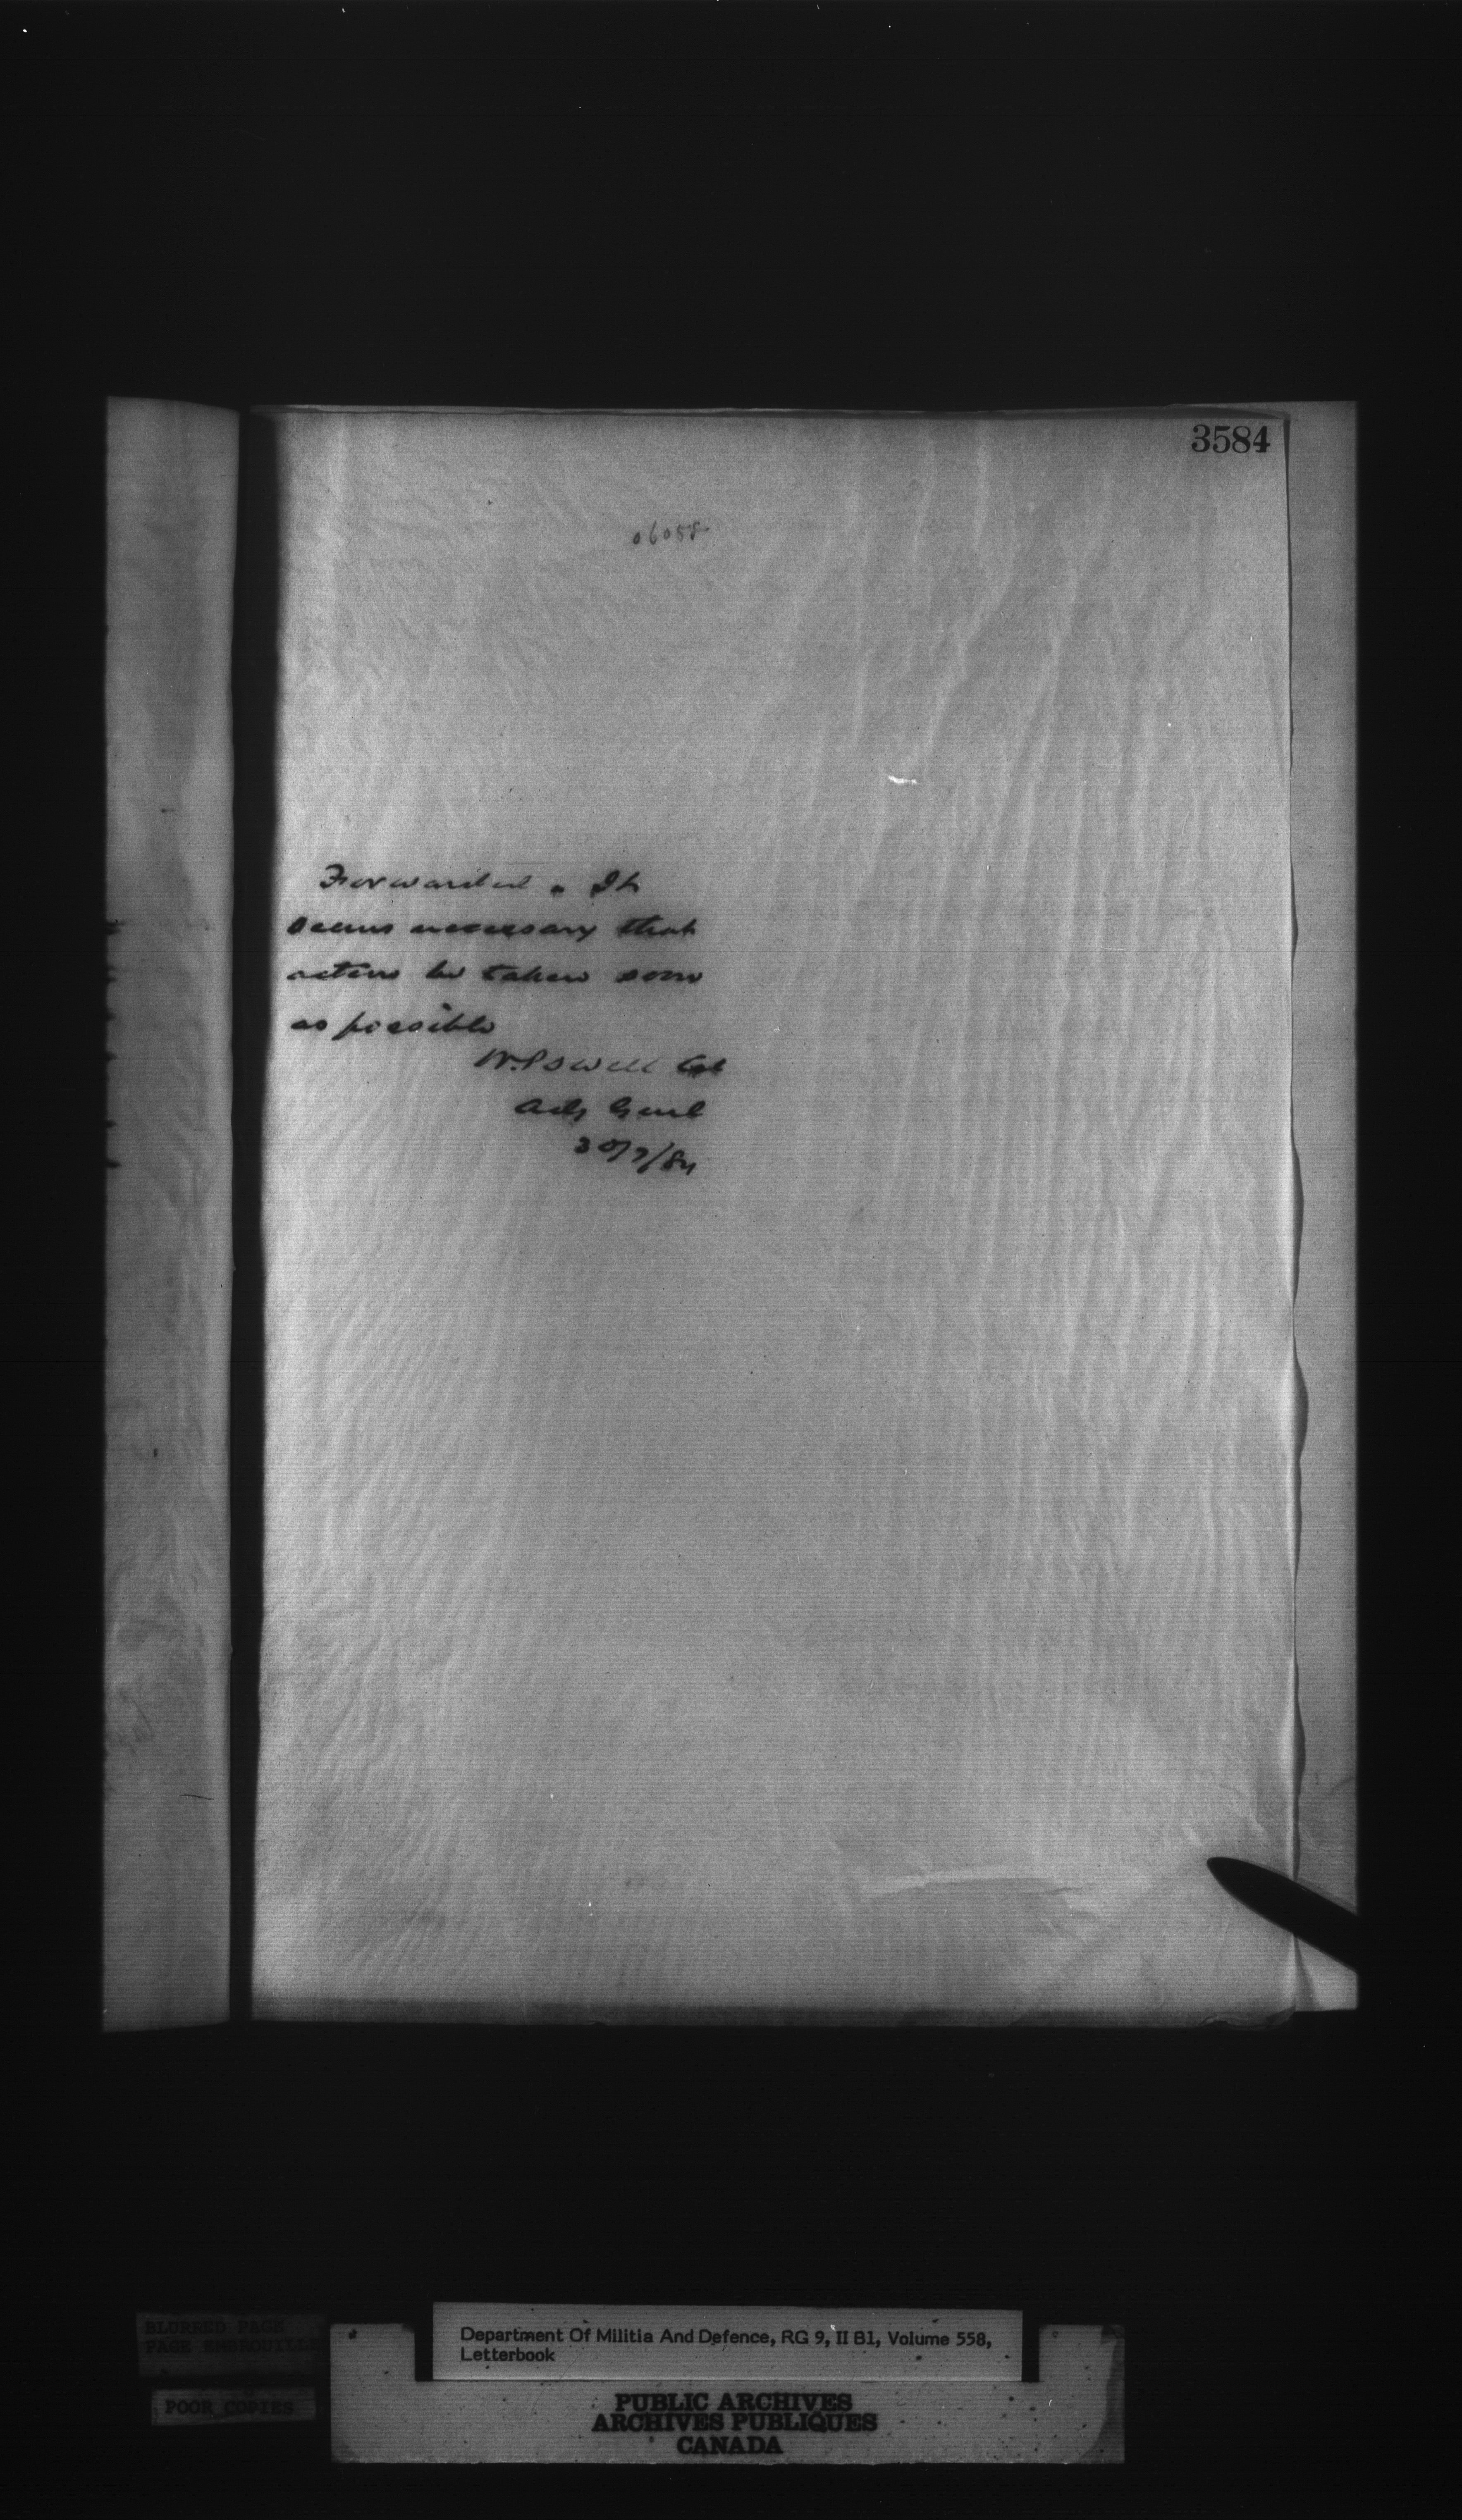 3584
06058
Forwarded. It
seems necessary that
action be taken soon
as possible
W. Powell Col
Adj Genl
30/7/84
BLURRED PAGE
PAGE EMBROUILL
POOR COPIES
Department Of Militia And Defence, RG 9, II B1, Volume 558,
Letterbook
PUBLIC ARCHIVES
ARCHIVES PUBLIQUES
CANADA